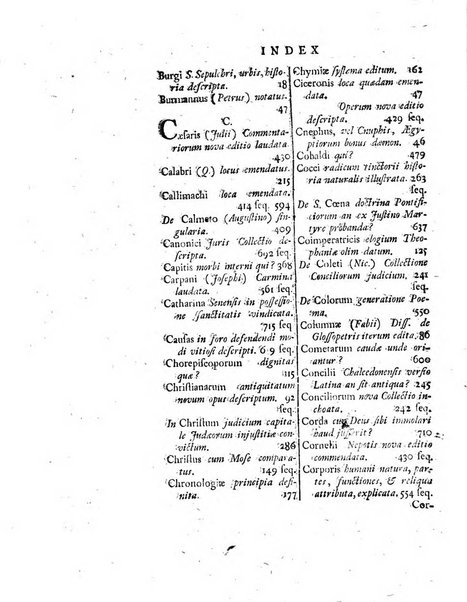 INDEX
Burgi S. Sepulchri, urbis, histo-
ria descripta. 18
Burmannus (Petrus) notatus.
47
C.
Cæsaris (Julii) Commenta-
riorum nova editio laudata.
430
Calabri (Q.) locus emendatus.
215
Callimachi loca emendata.
414 seq. 594
De Calmeto (Augustino) sin-
gularia. 409
Canonici Juris Collectio de-
scripta. 692 seq.
Capitis morbi interni qui? 368
Carpani (Josephi) Carmina
laudata. 561 seq.
Catharina Senensis in possessio-
ne sanctitatis vindicata.
715 seq.
Causas in foro defendendi mo-
di vitiosi descripti. 6 9 seq.
Chorepiscoporum dignitas
quæ? 274
Christianarum antiquitatum
novum opus descriptum. 92
seq.
In Christum judicium capita-
le Judæorum injustitiæ con-
victum. 286
Christus cum Mose compara-
tus. 149 seq.
Chronologiæ principia defi-
nita. 177
Chymiæ systema editum. 162
Ciceronis loca quædam emen-
data. 47
Operum nova editio
descripta. 429 seq.
Cnephus, vel Cnuphis, Ægy-
ptiorum bonus dæmon. 46
Cobaldi qui? 479
Cocci radicum tinctorii histo-
ria naturalis illustrata. 263
seq.
De S. Cœna doctrina Pontifi-
ciorum an ex Justino Mar-
tyre probanda? 637
Coimperatricis elogium Theo-
phaniæ olim datum. 125
De Coleti (Nic.) Collectione
Conciliorum judicium. 241
seq.
De Colorum generatione Poe-
ma. 550
Columnæ (Fabii) Diss. de
Glossopetris iterum edita. 86
Cometarum caudæ unde ori-
antur? 600
Concilii Chalcedonensis versio
Latina an sit antiqua? 245
Conciliorum nova Collectio in-
choata. 242 seq.
Corda cur Deus sibi immolari
haud jusserit? 710
Cornelii Nepotis nova editio
commendata. 430 seq.
Corporis humani natura, par-
tes, functiones, & reliqua
attributa, explicata. 554 seq.
Cor-